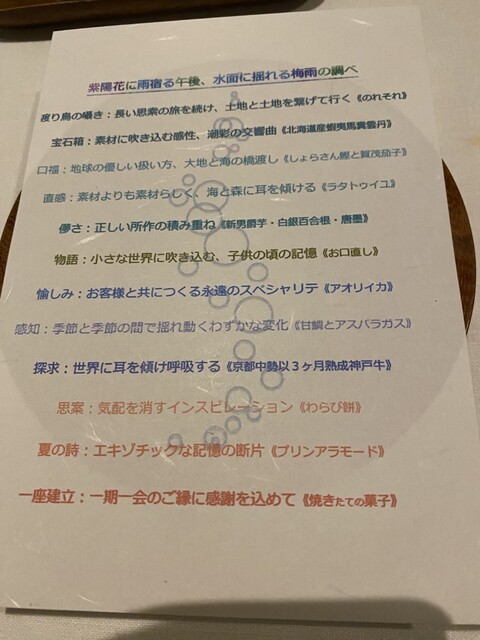 紫陽花に雨宿る午後、水面に揺れる梅雨の調べ
渡り鳥の囁き：長い思索の旅を続け、土地と土地を繋げて行く《のれそれ》
宝石箱：素材に吹き込む感性、潮彩の交響曲《北海道産蝦夷馬糞雲丹》
口福：地球の優しい扱い方、大地と海の橋渡し《しょらさん鰹と賀茂茄子》
直感：素材よりも素材らしく、海と森に耳を傾ける《ラタトゥイユ》
儚さ：正しい所作の積み重ね《新男爵芋・白銀百合根・唐墨》
物語：小さな世界に吹き込む、子供の頃の記憶《お口直し》
愉しみ：お客様と共につくる永遠のスペシャリテ《アオリイカ》
感知：季節と季節の間で揺れ動くわずかな変化《甘鯛とアスパラガス》
探求：世界に耳を傾け呼吸する《京都中勢以３ヶ月熟成神戸牛》
思案：気配を消すインスピレーション《わらび餅》
夏の詩：エキゾチックな記憶の断片《プリンアラモード》
一座建立：一期一会のご縁に感謝を込めて《焼きたての菓子》